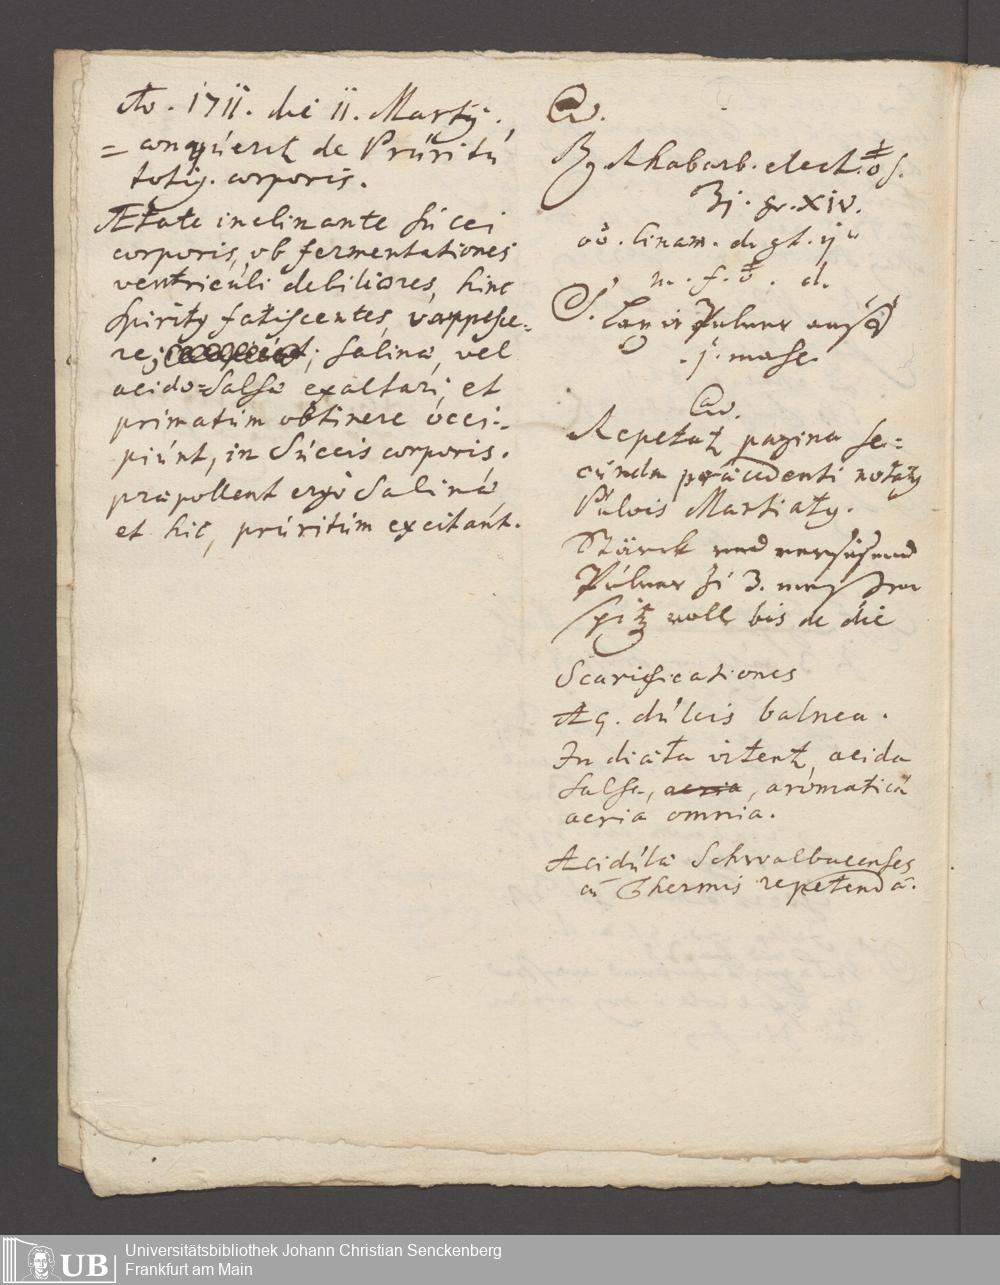 Ao. 1711. die 11. Martij.
= conquerens de Prúritú
totiq. corporis.
Ætate inclinante súcci
corporis, ob fermentationes
ventricúli debiliores, hinc
Spiritq fatiscentes, vappesce=
re; salina, vel
acido=salsa exaltari, et
primatúm obtinere occi-
piúnt, in Súccis corporis.
præpollent ergo Salina
et hic, prúritúm excitant.
Rhabarb. elect.
gr. XIV.
Cinam. gt. ij
m. f. d.
S. Laxir Pulver
j. mahl
Repetat pagina se=
cúnda præcedenti notatq
Púlvis Martialq.
Stärck und
Púlver zú 3. Meßer
spitz voll bis de die
Scarificationes
Aq. dúlcis balnea.
In diæta vitent, acida
salsa, acria, aromatica
acria omnia.
Acidúlæ Schwalbacenses
cú Thermis repetendæ.
Universitätsbibliothek Johann Christian Senckenberg
UB Frankfurt am Main